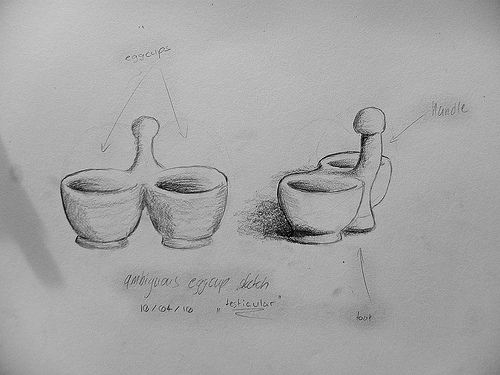 eggcups
Handle
ambiguous eggcup sketch
10/04/10 "testicular"
foot